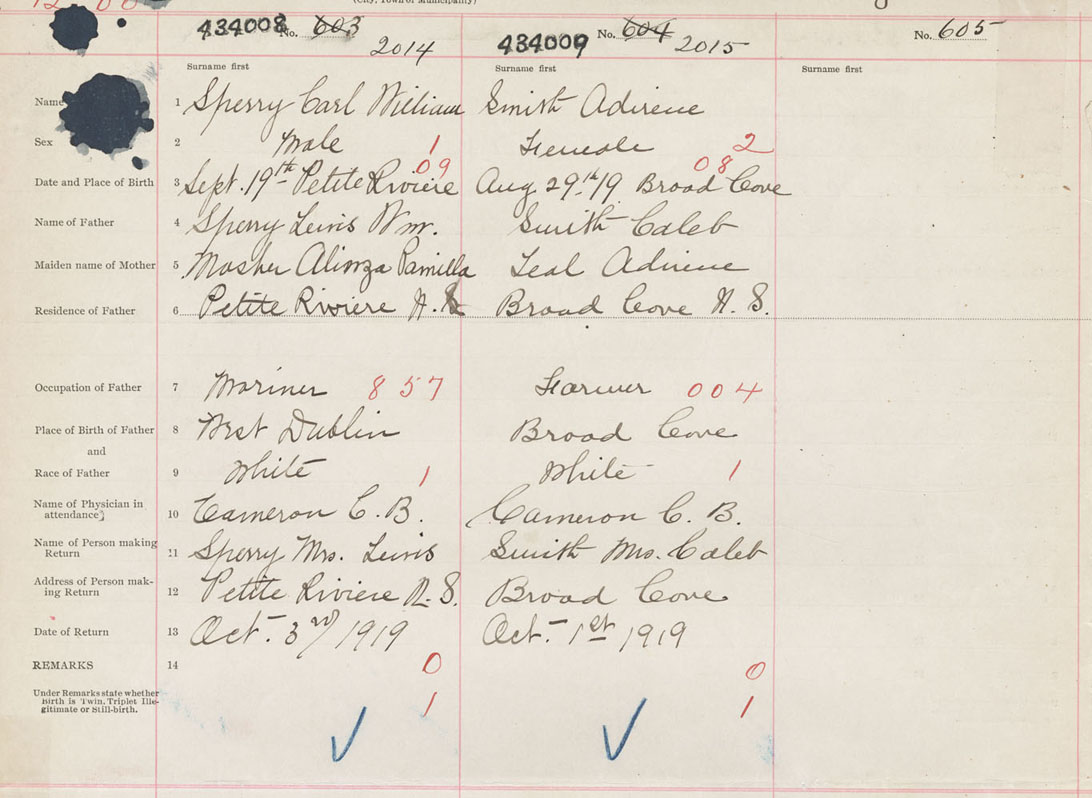 12 00
(City, Town or Municipality)
434008 No. 603 2014
434009 No. 604 2015
No. 605
Surname first Surname first Surname first
Name 1 Sperry Carl William Smith Adirene
Sex 2 Male 1 Female 2
09 08
Date and Place of Birth 3 Sept. 19th Petite Riviere Aug 29th/19 Broad Cove
Name of Father 4 Sperry Lewis Wm. Smith Caleb
Maiden name of Mother 5 Mosher Teal Adirene
Residence of Father 6 Petite Riviere N.S. Broad Cove N.S.
Occupation of Father 7 Mariner 857 Farmer 004
Place of Birth of Father 8 West Dublin Broad Cove
and
Race of Father 9 White 1 White 1
Name of Physician in
attendance 10 Cameron C.B. Cameron C.B.
Name of Person making
Return 11 Sperry Mrs. Lewis Smith Mrs. Caleb
Address of Person mak-
ing Return 12 Petite Riviere N.S. Broad Cove
Date of Return 13 Oct. 3rd/1919 Oct. 1st/1919
REMARKS 14 0 0
Under Remarks state whether
Birth is Twin, Triplet Ille- 1 1
gitimate or Still-birth.